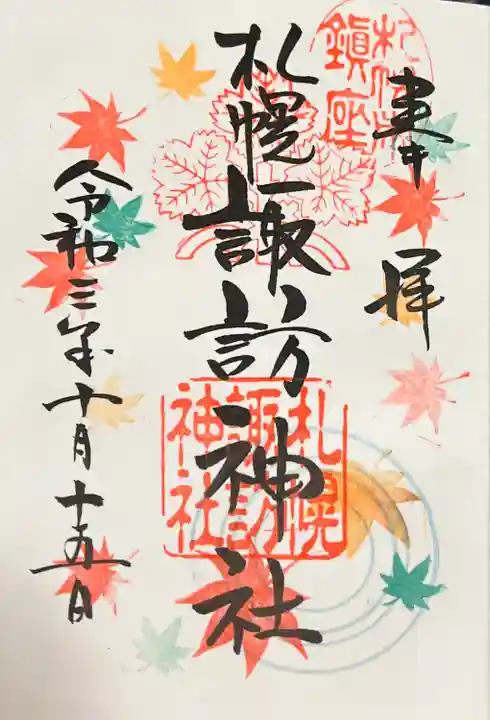 奉拝
札幌鎮座
札幌諏訪神社
札幌諏訪神社
令和三年十月十五日